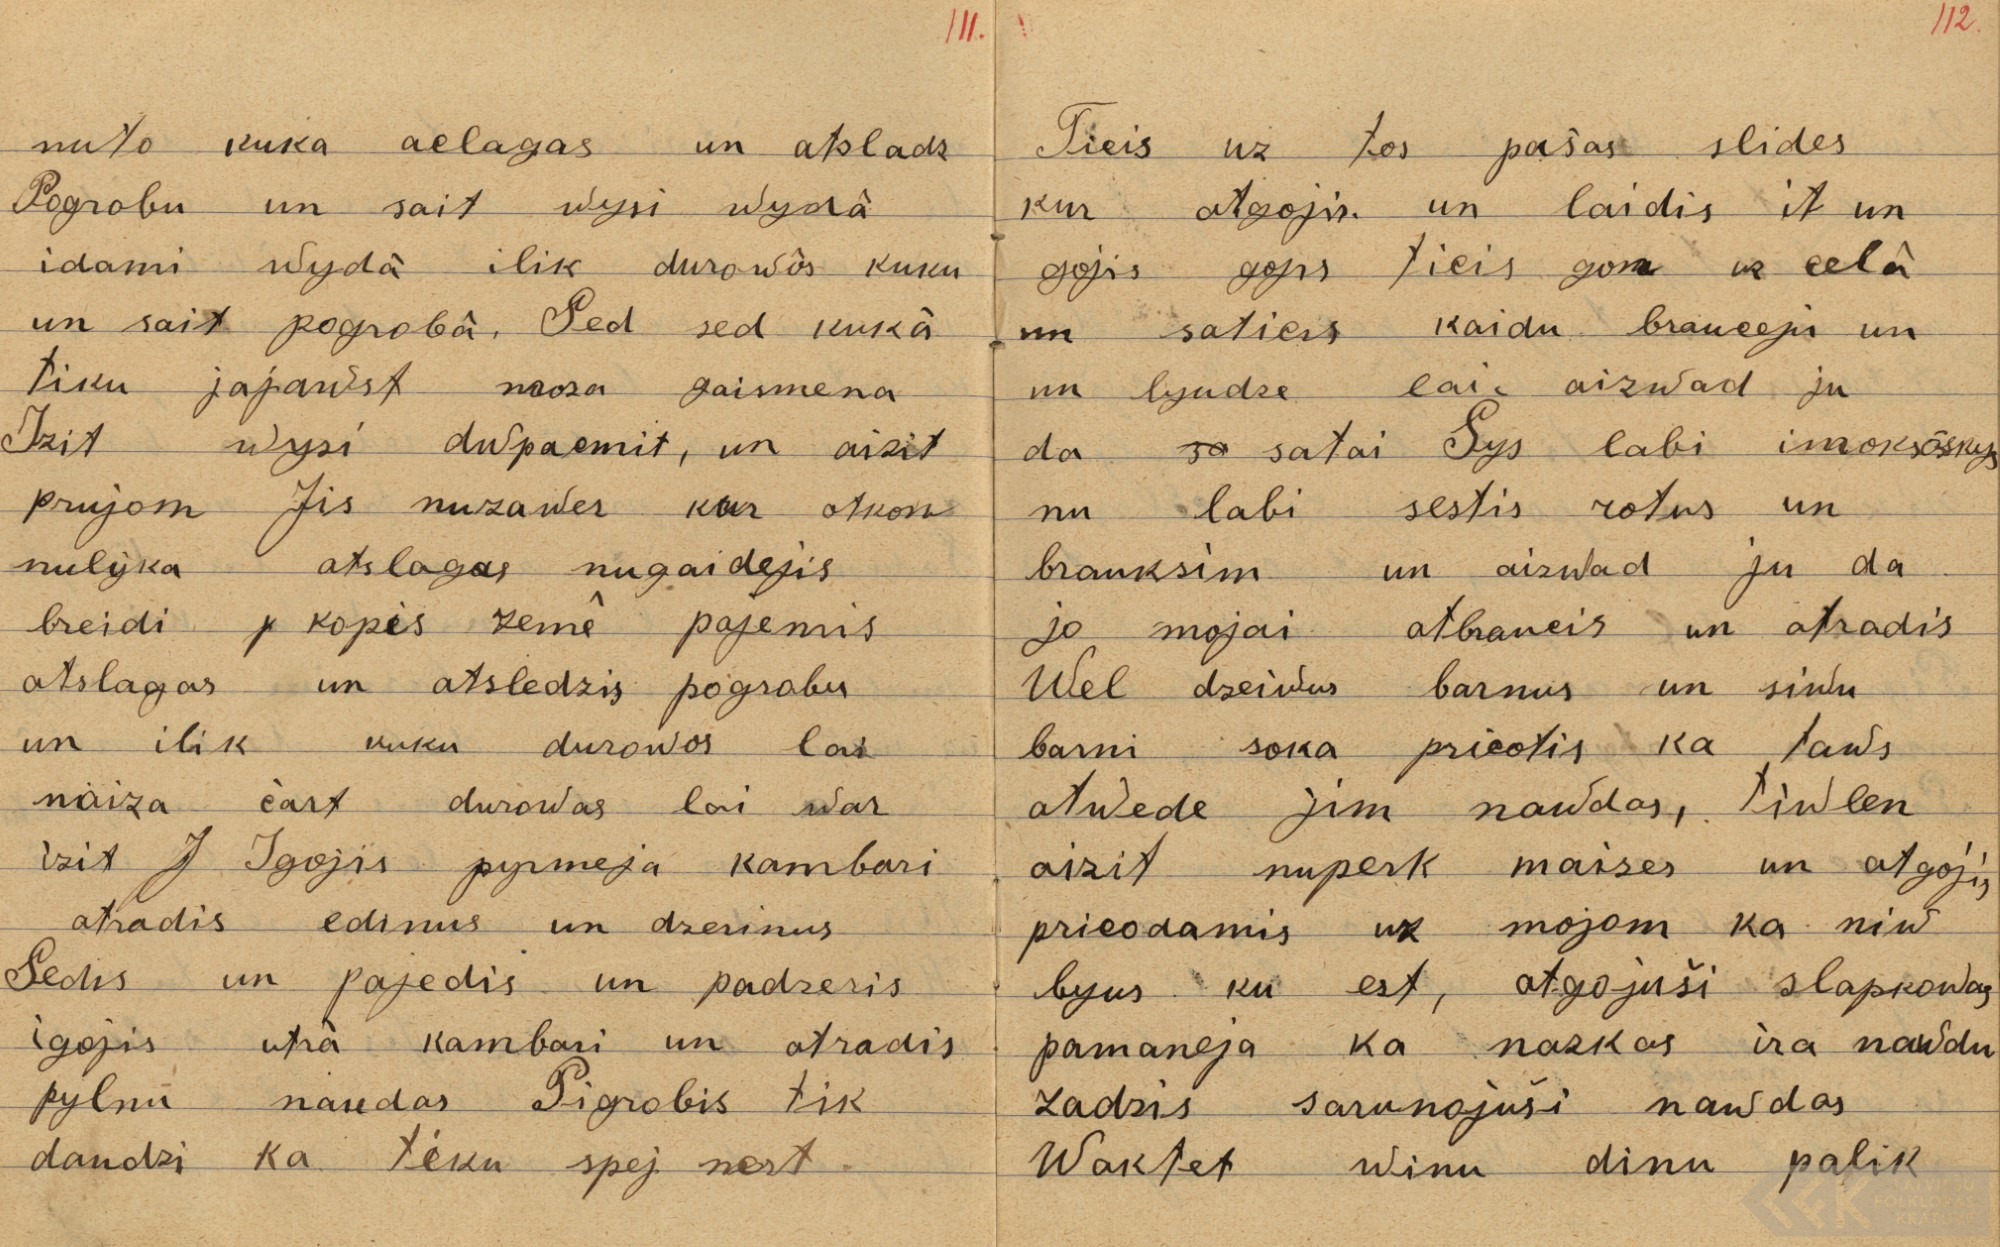 111.
nuto kuka aelagas un atsladz
Pogrobu un sait wysi wydâ
idami wydâ ilik durowôs kuku
un sait pogrobâ. Sed sed kukâ
tiku japawst moza gaismena
Izit wysi duwpaemit, un aizit
prujom Jis nuzawer kur otkon
nulyka atslagas nugaidejis
breidi kopis zemê pajemis
atslagas un atsledzis pogrobu
un ilik kuku durowos lai
naiza čart durowas lai war
izit J Igojis pyrmeja kambari
atradis edinus un dzerinus
Sedis un pajedis un padzeris
igojis utrâ kambari un atradis
pylnu naudas Pigrobis tik
daudzi ka tiku spej nest.
112.
Tieis uz tos pašas slides
kur atgojis un laidis it un
gojis gojis ticis gon uz celâ
un saticis kaidu brauceju un
un lyudze lai aizwad ju
da so satai Sys labi imoksôskys
nu labi sestis rotus un
brauksim un aizwad ju da
jo mojai atbraucis un atradis
Wel dzeiwus barnus un siwu
barni soka pricotis ka taws
atwede jim nawdas, tiwlen
aizit nuperk maizes un atgojis
pricodamis uz mojom ka niw
byus ku est, atgojuši slapkowas
pamaneja ka nazkas ira nawdu
zadzis sarunojuši nawdas
Waktet winu dinu palik